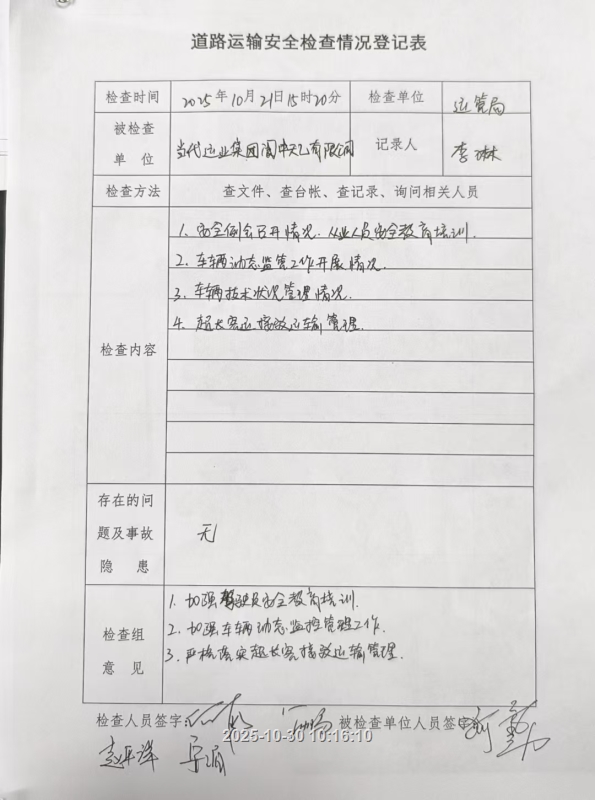 道路运输安全检查情况登记表
检查时间 2025年10月21日15时20分 检查单位 运管局
被检查单位 当代运业集团阆中天乙有限公司 记录人 李琳
检查方法 查文件、查台帐、查记录、询问相关人员
检查内容
1. 安全例会召开情况、从业人员安全教育培训.
2. 车辆动态监管工作开展情况.
3. 车辆技术状况管理情况.
4. 超长客运接驳运输管理.
存在的问
题及事故
隐 患
无
检查组
意 见
1. 加强驾驶员安全教育培训.
2. 加强车辆动态监控管理工作.
3. 严格落实超长客接驳运输管理.
检查人员签字: 被检查单位人员签字:
2025-10-30 10:16:10